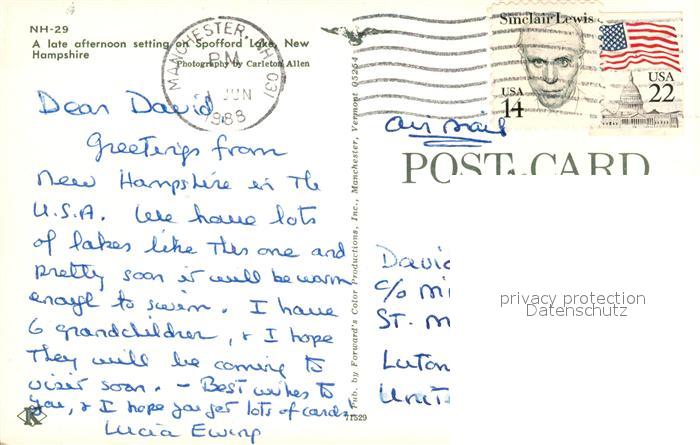 NH-29
A late afternoon setting on Spofford Lake, New
Hampshire
Photography by Carleton Allen
MANCHESTER, NH 031
PM
JUN
1988
Sinclair Lewis
USA
14
USA
22
air mail
POST CARD
Dear David
Greetings from
New Hampshire in The
U.S.A. We have lots
of lakes like this one and
pretty soon it will be warm
enough to swim. I have
6 grandchildren, & I hope
They will be coming to
visit soon. - Best wishes to
you, & I hope you get lots of cards!
Lucia Ewing
Pub. by Forward's Color Productions, Inc., Manchester, Vermont 05254
71529
K
David
c/o Mi
St. M
Luton
Unit
privacy protection
Datenschutz